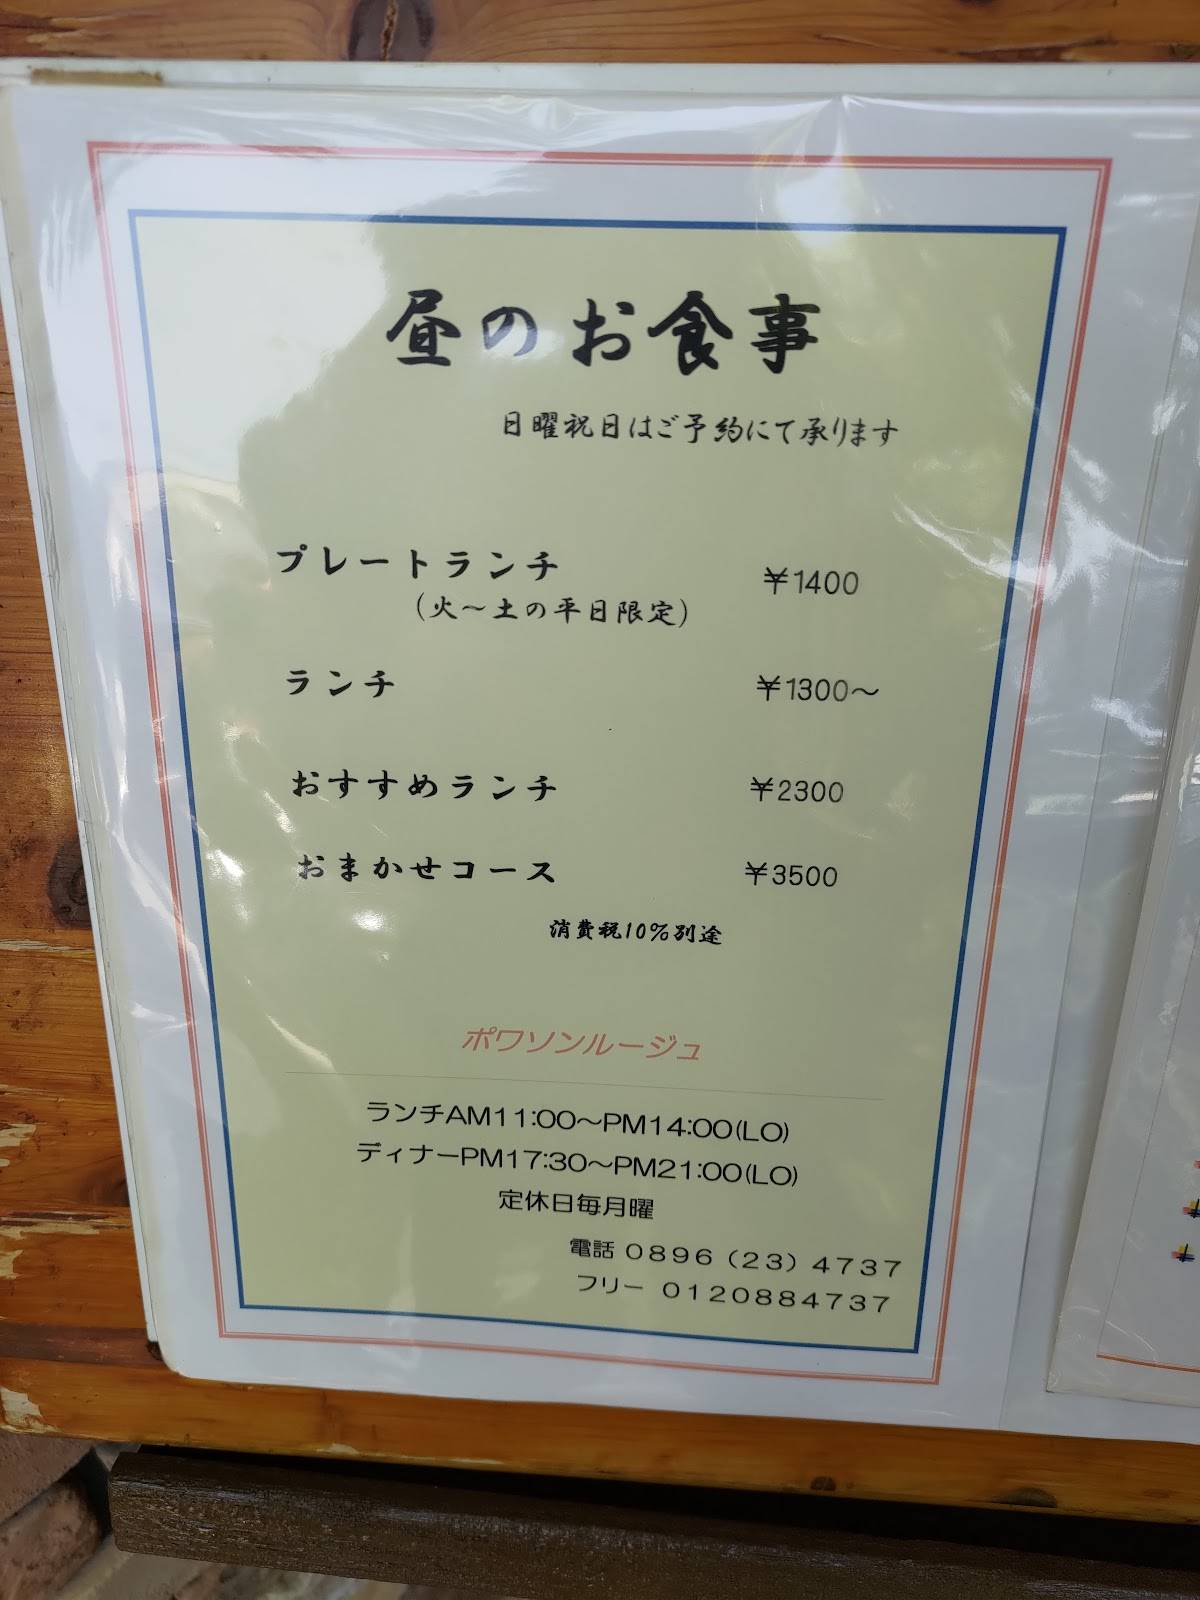 昼のお食事
日曜祝日はご予約にて承ります
プレートランチ ￥1400
(火～土の平日限定)
ランチ ￥1300～
おすすめランチ ￥2300
おまかせコース ￥3500
消費税10%別途
ポワソンルージュ
ランチAM11:00～PM14:00(LO)
ディナーPM17:30～PM21:00(LO)
定休日毎月曜
電話 0896 (23) 4737
フリー 0120884737